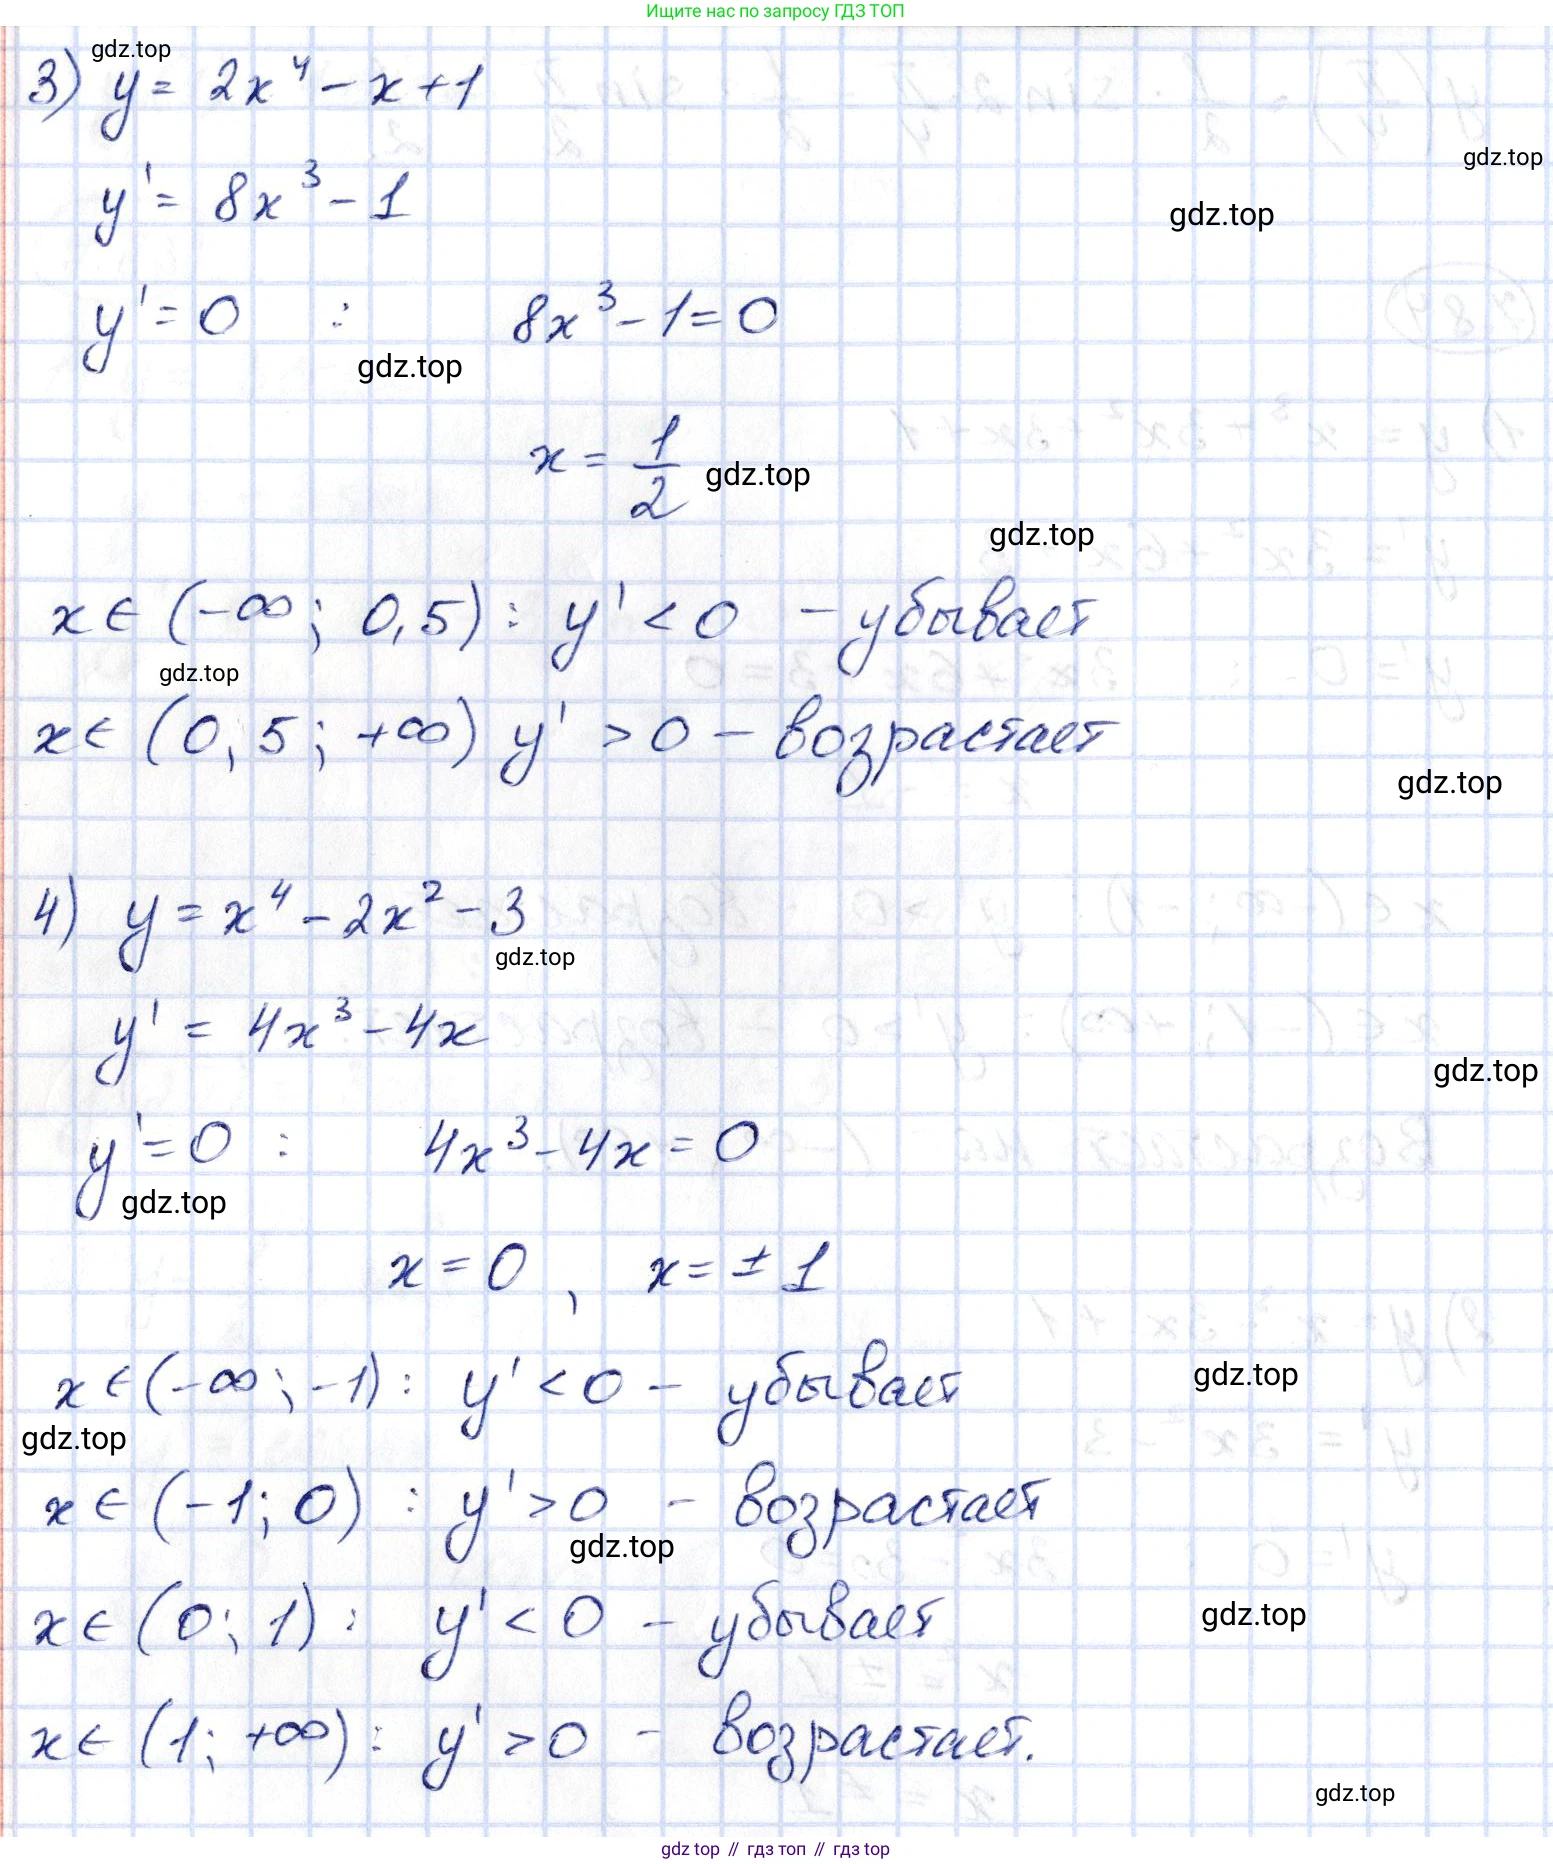 Ищите нас по запросу ГДЗ ТОП
gdz.top
3) y = 2x⁴ - x + 1
gdz.top
y' = 8x³ - 1
gdz.top
y' = 0 : 8x³ - 1 = 0
gdz.top
x = 1/2
gdz.top
gdz.top
x ∈ (-∞; 0,5) : y' < 0 - убывает
gdz.top
x ∈ (0,5; +∞) y' > 0 - возрастает
gdz.top
4) y = x⁴ - 2x² - 3
gdz.top
y' = 4x³ - 4x
gdz.top
y' = 0 : 4x³ - 4x = 0
gdz.top
x = 0, x = ± 1
x ∈ (-∞; -1) : y' < 0 - убывает
gdz.top
gdz.top
x ∈ (-1; 0) : y' > 0 - возрастает
gdz.top
x ∈ (0; 1) : y' < 0 - убывает
gdz.top
x ∈ (1; +∞) : y' > 0 - возрастает.
gdz.top
gdz top // гдз топ // гдз top